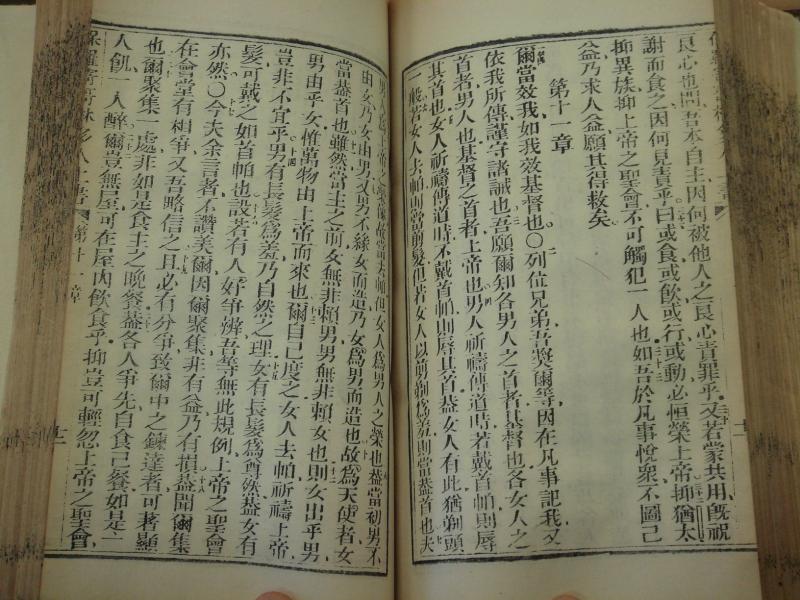 良心也問吾本自主因何被他人之良心責罪乎又若蒙共用旣祝
謝而食之因何見責乎曰或食或飲或行或動必恒榮上帝抑猶太
抑異族抑上帝之聖會不可觸犯一人也如吾於凡事悅衆不圖己
益乃求人益願其得救矣
第十一章
爾當效我如我效基督也〇列位兄弟吾奬爾等因在凡事記我又
依我所傳謹守諸誡也吾願爾知各男人之首者基督也各女人之
首者男人也基督之首者上帝也男人祈禱傳道時若戴首帕則辱
其首也女人祈禱傳道時不戴首帕則辱其首葢女人有此猶剃頭
一般若女人去帕則當剪髮但若女人以剪剃爲羞則當葢首也夫
男人爲上帝之故當去帕但女人爲男人之榮也葢當初男不
由女乃女由男又男不爲女而造乃女爲男而造也故爲天使者女
當葢首也雖然當主之前女無非賴男男無非賴女也則女出乎男
男由乎女惟萬物由上帝而來也爾自己度之女人去帕祈禱上帝
豈非不宜乎男有長髮爲羞乃自然之理女有長髮爲尊然葢女有
髮可戴之如首帕也設若有人好爭辨吾等無此規例上帝之聖會
亦然〇今夫余言者不讚美爾因爾聚集非有益乃有損葢聞爾集
在會堂有相爭又吾略信之且必有分爭致爾中之鍊達者可著顯
也爾聚集一處非如是食主之晩餐葢各人爭先自食己餐如是一
人飢一人醉爾豈無屋可在屋內飲食乎抑豈可輕忽上帝之聖會
保羅寄哥林多人上書
第十一章
十二